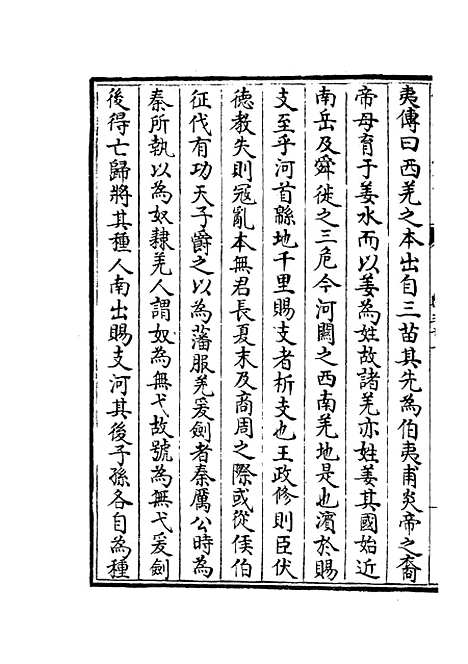 夷傳曰西羌之本出自三苗其先為伯夷甫炎帝之裔
帝母育于姜水而以姜為姓故諸羌亦姓姜其國始近
南岳及舜徙之三危今河關之西南羌地是也濱於賜
支至乎河首緜地千里賜支者析支也王政修則臣伏
德教失則冦亂本無君長夏末及商周之際或從侯伯
征伐有功天子爵之以為藩服羌爰劍者秦厲公時為
秦所執以為奴隸羌人謂奴為無弋故號為無弋爰劍
後得亡歸將其種人南出賜支河其後子孫各自為種